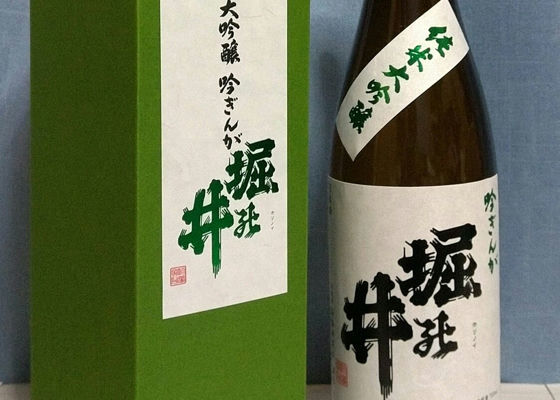 大吟醸 吟ぎんが
堀の井
ホリノイ
純米大吟醸
吟ぎんが
堀の井
ホリノイ